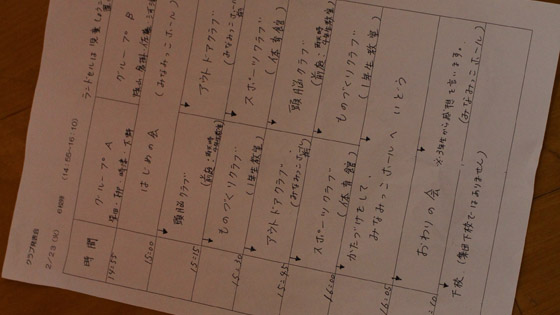 クラブ発表会
2/23(火) 6校時 (14:55~16:10)
ランドセルは
時間
グループ A
グループ B
14:55
15:00
はじめの会
(みなみっこホール)
15:15
頭脳クラブ
アウトドアクラブ
(みなみっこホール前)
15:30
ものづくりクラブ
(1年生教室)
スポーツクラブ
(体育館)
15:45
アウトドアクラブ
(みなみっこホール前)
頭脳クラブ
16:00
スポーツクラブ
(体育館)
ものづくりクラブ
(1年生教室)
16:05
かたづけをして、
みなみっこホールへ いどう
おわりの会
※3年生から感想を言います。
(みなみっこホール)
下校 (集団下校ではありません)